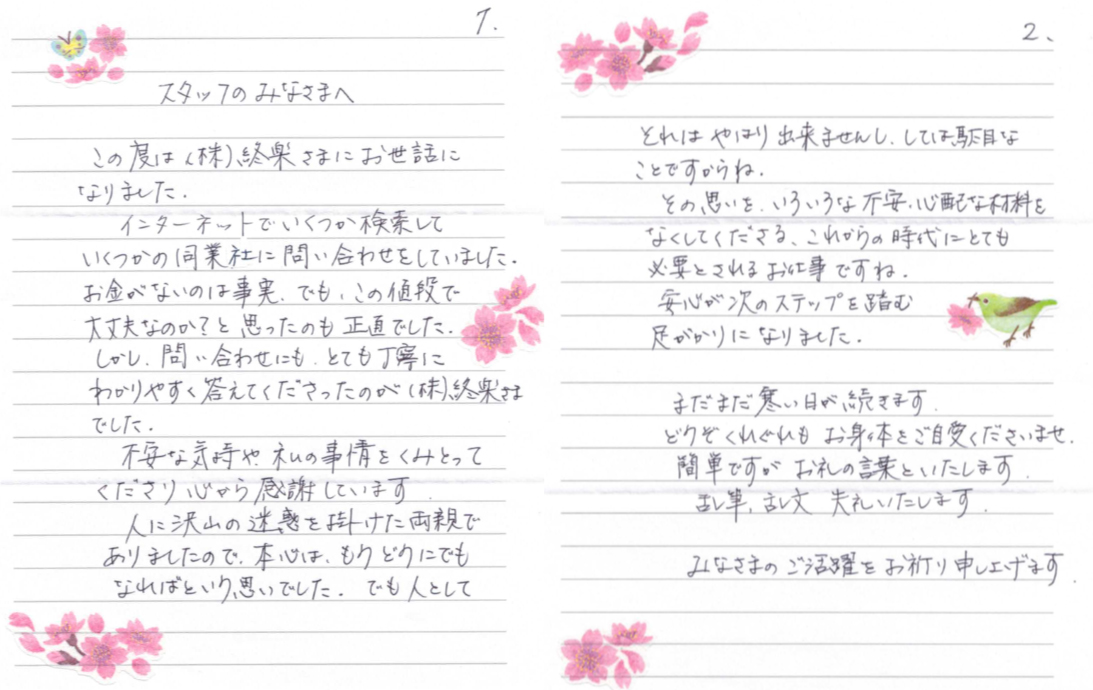 1.
スタッフのみなさまへ
この度は(株)終楽さまにお世話に
なりました.
インターネットでいくつか検索して
いくつかの同業社に問い合わせをしていました.
お金がないのは事実、でも、この値段で
大丈夫なのか?と思ったのも正直でした.
しかし、問い合わせにも、とても丁寧に
わかりやすく答えてくださったのが(株)終楽さま
でした.
不安な気持や私の事情をくみとって
くださり心から感謝しています.
人に沢山の迷惑を掛けた両親で
ありましたので、本心は、もうどうにでも
なればという思いでした. でも人として
2、
それはやはり出来ませんし、しては駄目な
ことですからね.
その思いを、いろいろな不安、心配な材料を
なくしてくださる、これからの時代にとても
必要とされるお仕事ですね.
安心が次のステップを踏む
足がかりになりました.
まだまだ寒い日が続きます.
どうぞくれぐれもお身体をご自愛くださいませ.
簡単ですがお礼の言葉といたします.
乱筆、乱文 失礼いたします.
みなさまのご活躍をお祈り申し上げます.